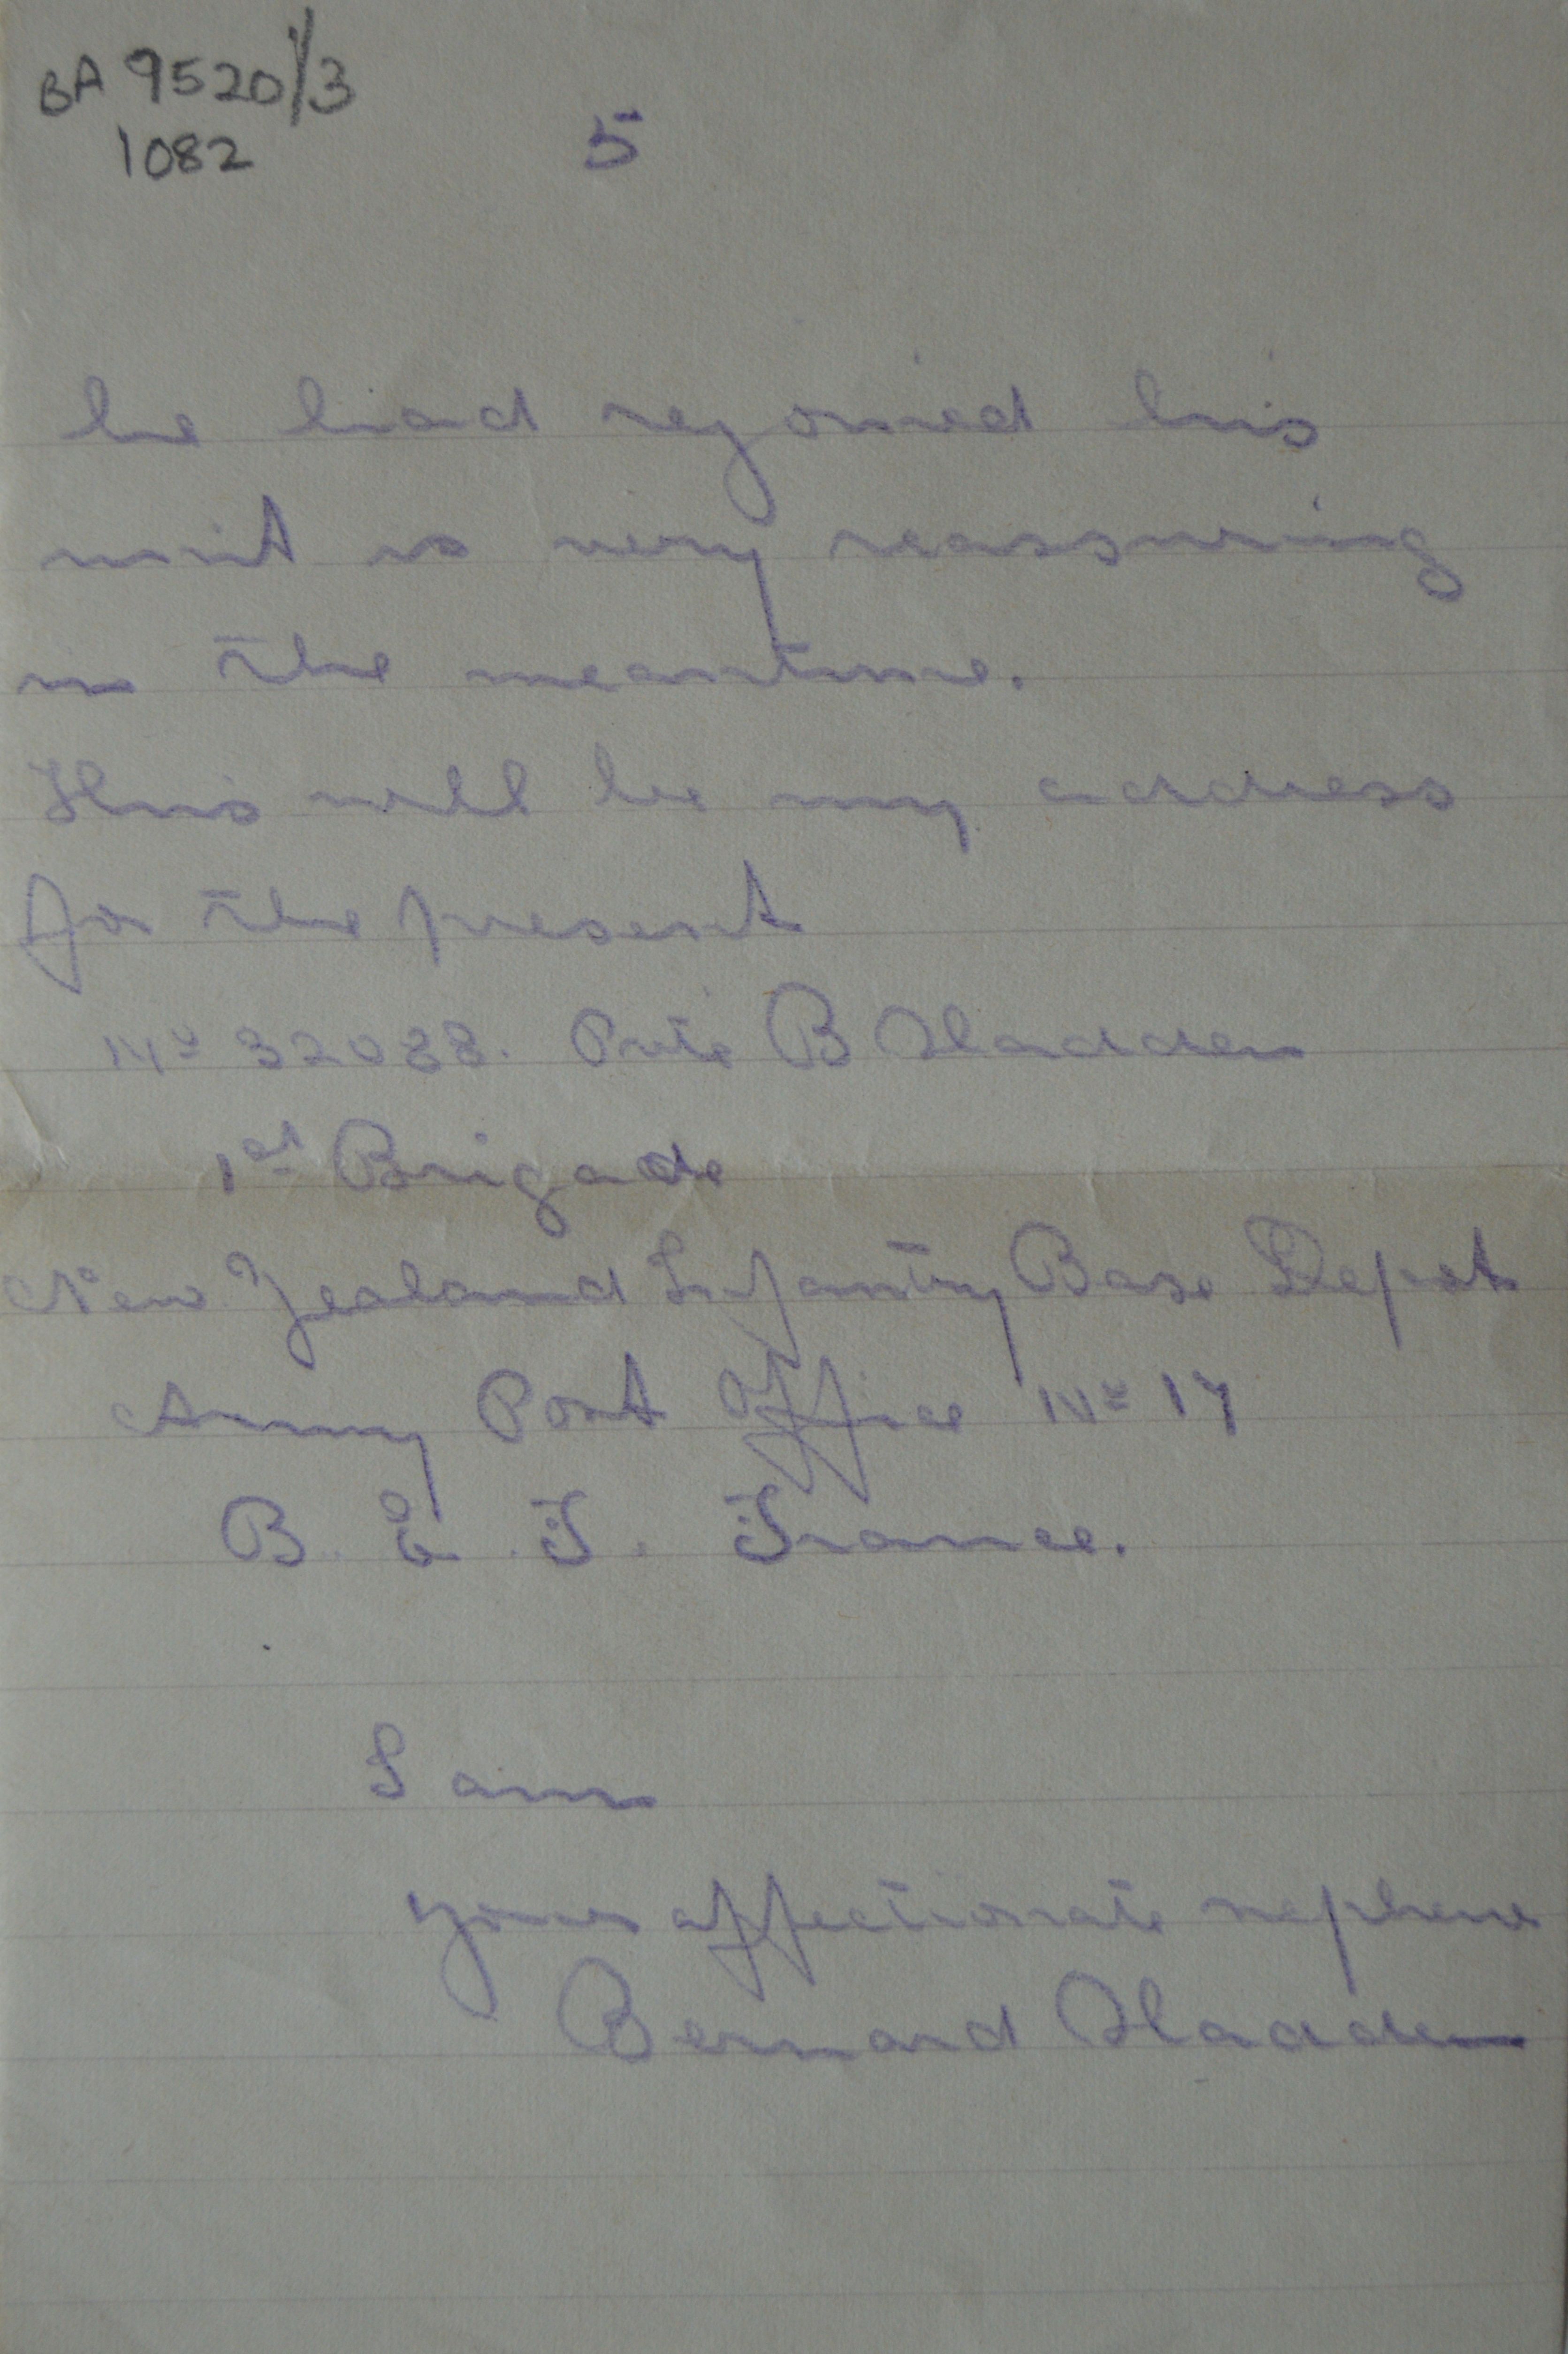 BA 9520/3
1082
5
he had rejoined his
unit is very reassuring
in the meantime.
This will be my address
for the present
No 32088. Pvte B Sladden
1st Brigade
New Zealand Infantry Base Depot
Army Post Office No 17
B. E. F. France.
I am
your affectionate nephew
Bernard Sladden